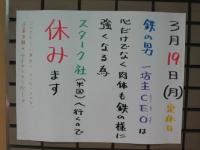 3月19日(月)定休日
鉄の男 一坊主CEOは
心だけでなく肉体も鉄の様に
強くなる為
スターク社(米国)へ行くので
休みます